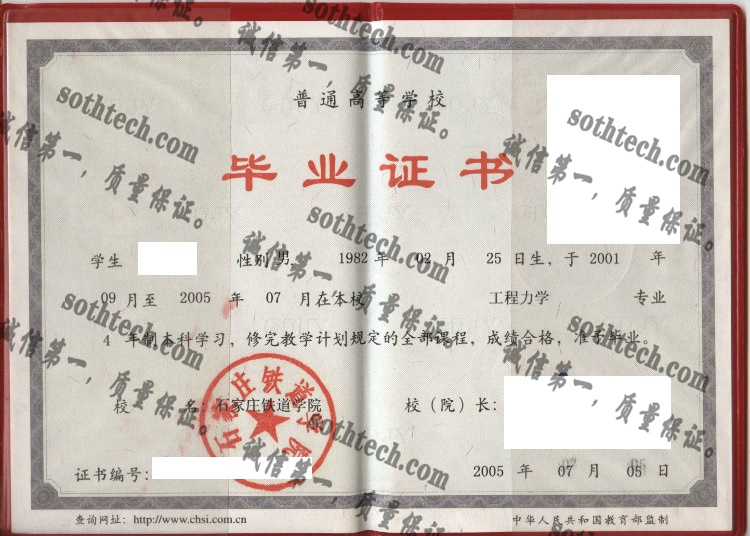 普通高等学校
毕业证书
学生 性别 男 1982 年 02 月 25 日生，于 2001 年
09 月至 2005 年 07 月在本校 工程力学 专业
4 年制本科学习，修完教学计划规定的全部课程，成绩合格，准予毕业。
校 名：石家庄铁道学院 校（院）长：
石家庄铁道学院
证书编号： 2005 年 07 月 05 日
查询网址：http://www.chsi.com.cn 中华人民共和国教育部监制
sothtech.com
诚信第一，质量保证。
sothtech.com
诚信第一，质量保证。
sothtech.com
诚信第一，质量保证。
sothtech.com
诚信第一，质量保证。
sothtech.com
诚信第一，质量保证。
sothtech.com
诚信第一，质量保证。
sothtech.com
诚信第一，质量保证。